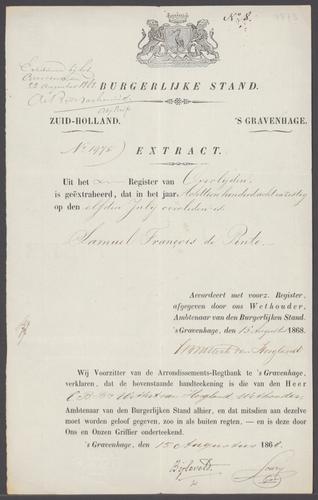 N.º 8.
1873
BURGERLIJKE STAND.
ZUID-HOLLAND. 'S GRAVENHAGE.
Nº 1475
EXTRACT.
Uit het Register van Overlijden
is geëxtraheerd, dat in het jaar Achttien honderd acht en zestig
op den elfden July overleden is
Samuel François de Pinto.
Accordeert met voorz. Register,
afgegeven door ons Wethouder,
Ambtenaar van den Burgerlijken Stand.
's Gravenhage, den 13 Augustus 1868.
Wij Voorzitter van de Arrondissements-Regtbank te 's Gravenhage,
verklaren, dat de bovenstaande handteekening is die van den Heer
Wethouder
Ambtenaar van den Burgerlijken Stand alhier, en dat mitsdien aan dezelve
moet worden geloof gegeven, zoo in als buiten regten, — en is deze door
Ons en Onzen Griffier onderteekend.
's Gravenhage, den 15 Augustus 1868.
Bijleveld